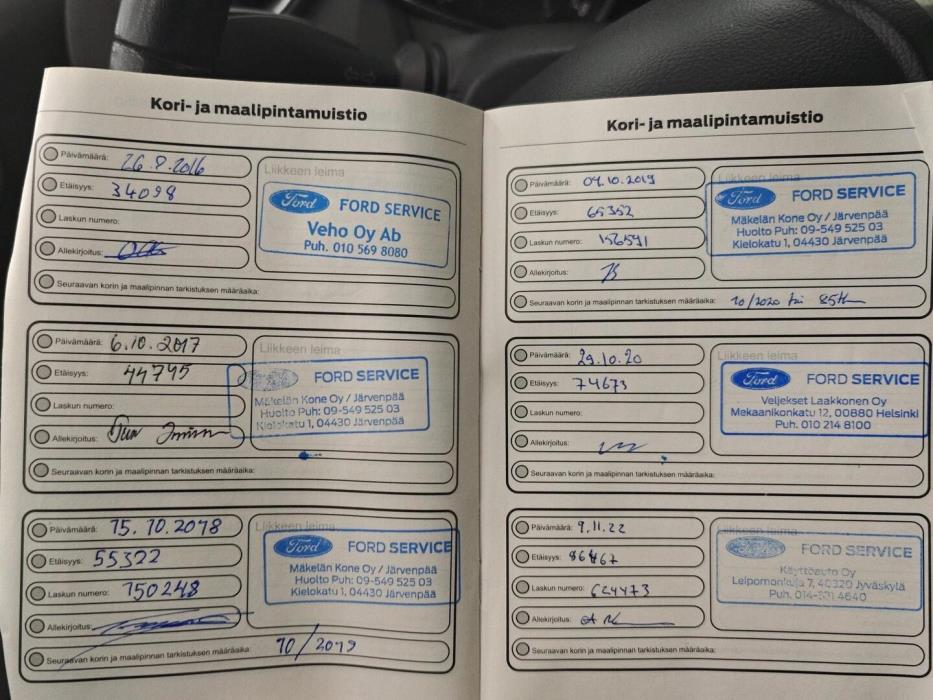 Kori- ja maalipintamuistio
Päivämäärä: 26.9.2016
Etäisyys: 34098
Laskun numero:
Allekirjoitus:
Seuraavan korin ja maalipinnan tarkistuksen määräaika:
Liikkeen leima
Ford FORD SERVICE
Veho Oy Ab
Puh. 010 569 8080
Päivämäärä: 6.10.2017
Etäisyys: 44745
Laskun numero:
Allekirjoitus:
Seuraavan korin ja maalipinnan tarkistuksen määräaika:
Liikkeen leima
FORD SERVICE
Mäkelän Kone Oy / Järvenpää
Huolto Puh: 09-549 525 03
Kielokatu 1, 04430 Järvenpää
Päivämäärä: 15.10.2018
Etäisyys: 55322
Laskun numero: 150248
Allekirjoitus:
Seuraavan korin ja maalipinnan tarkistuksen määräaika: 10/2019
Liikkeen leima
Ford FORD SERVICE
Mäkelän Kone Oy / Järvenpää
Huolto Puh: 09-549 525 03
Kielokatu 1, 04430 Järvenpää
Kori- ja maalipintamuistio
Päivämäärä: 09.10.2019
Etäisyys: 65352
Laskun numero: 156591
Allekirjoitus:
Seuraavan korin ja maalipinnan tarkistuksen määräaika: 10/2020 tai 85tkm
Liikkeen leima
Ford FORD SERVICE
Mäkelän Kone Oy / Järvenpää
Huolto Puh: 09-549 525 03
Kielokatu 1, 04430 Järvenpää
Päivämäärä: 29.10.20
Etäisyys: 74673
Laskun numero:
Allekirjoitus:
Seuraavan korin ja maalipinnan tarkistuksen määräaika:
Liikkeen leima
Ford FORD SERVICE
Veljekset Laakkonen Oy
Mekaanikonkatu 12, 00880 Helsinki
Puh. 010 214 8100
Päivämäärä: 9.11.22
Etäisyys: 86467
Laskun numero: 624473
Allekirjoitus:
Seuraavan korin ja maalipinnan tarkistuksen määräaika:
Liikkeen leima
FORD SERVICE
Käyttöauto Oy
Leipomonkuja 7, 40320 Jyväskylä
Puh. 4640